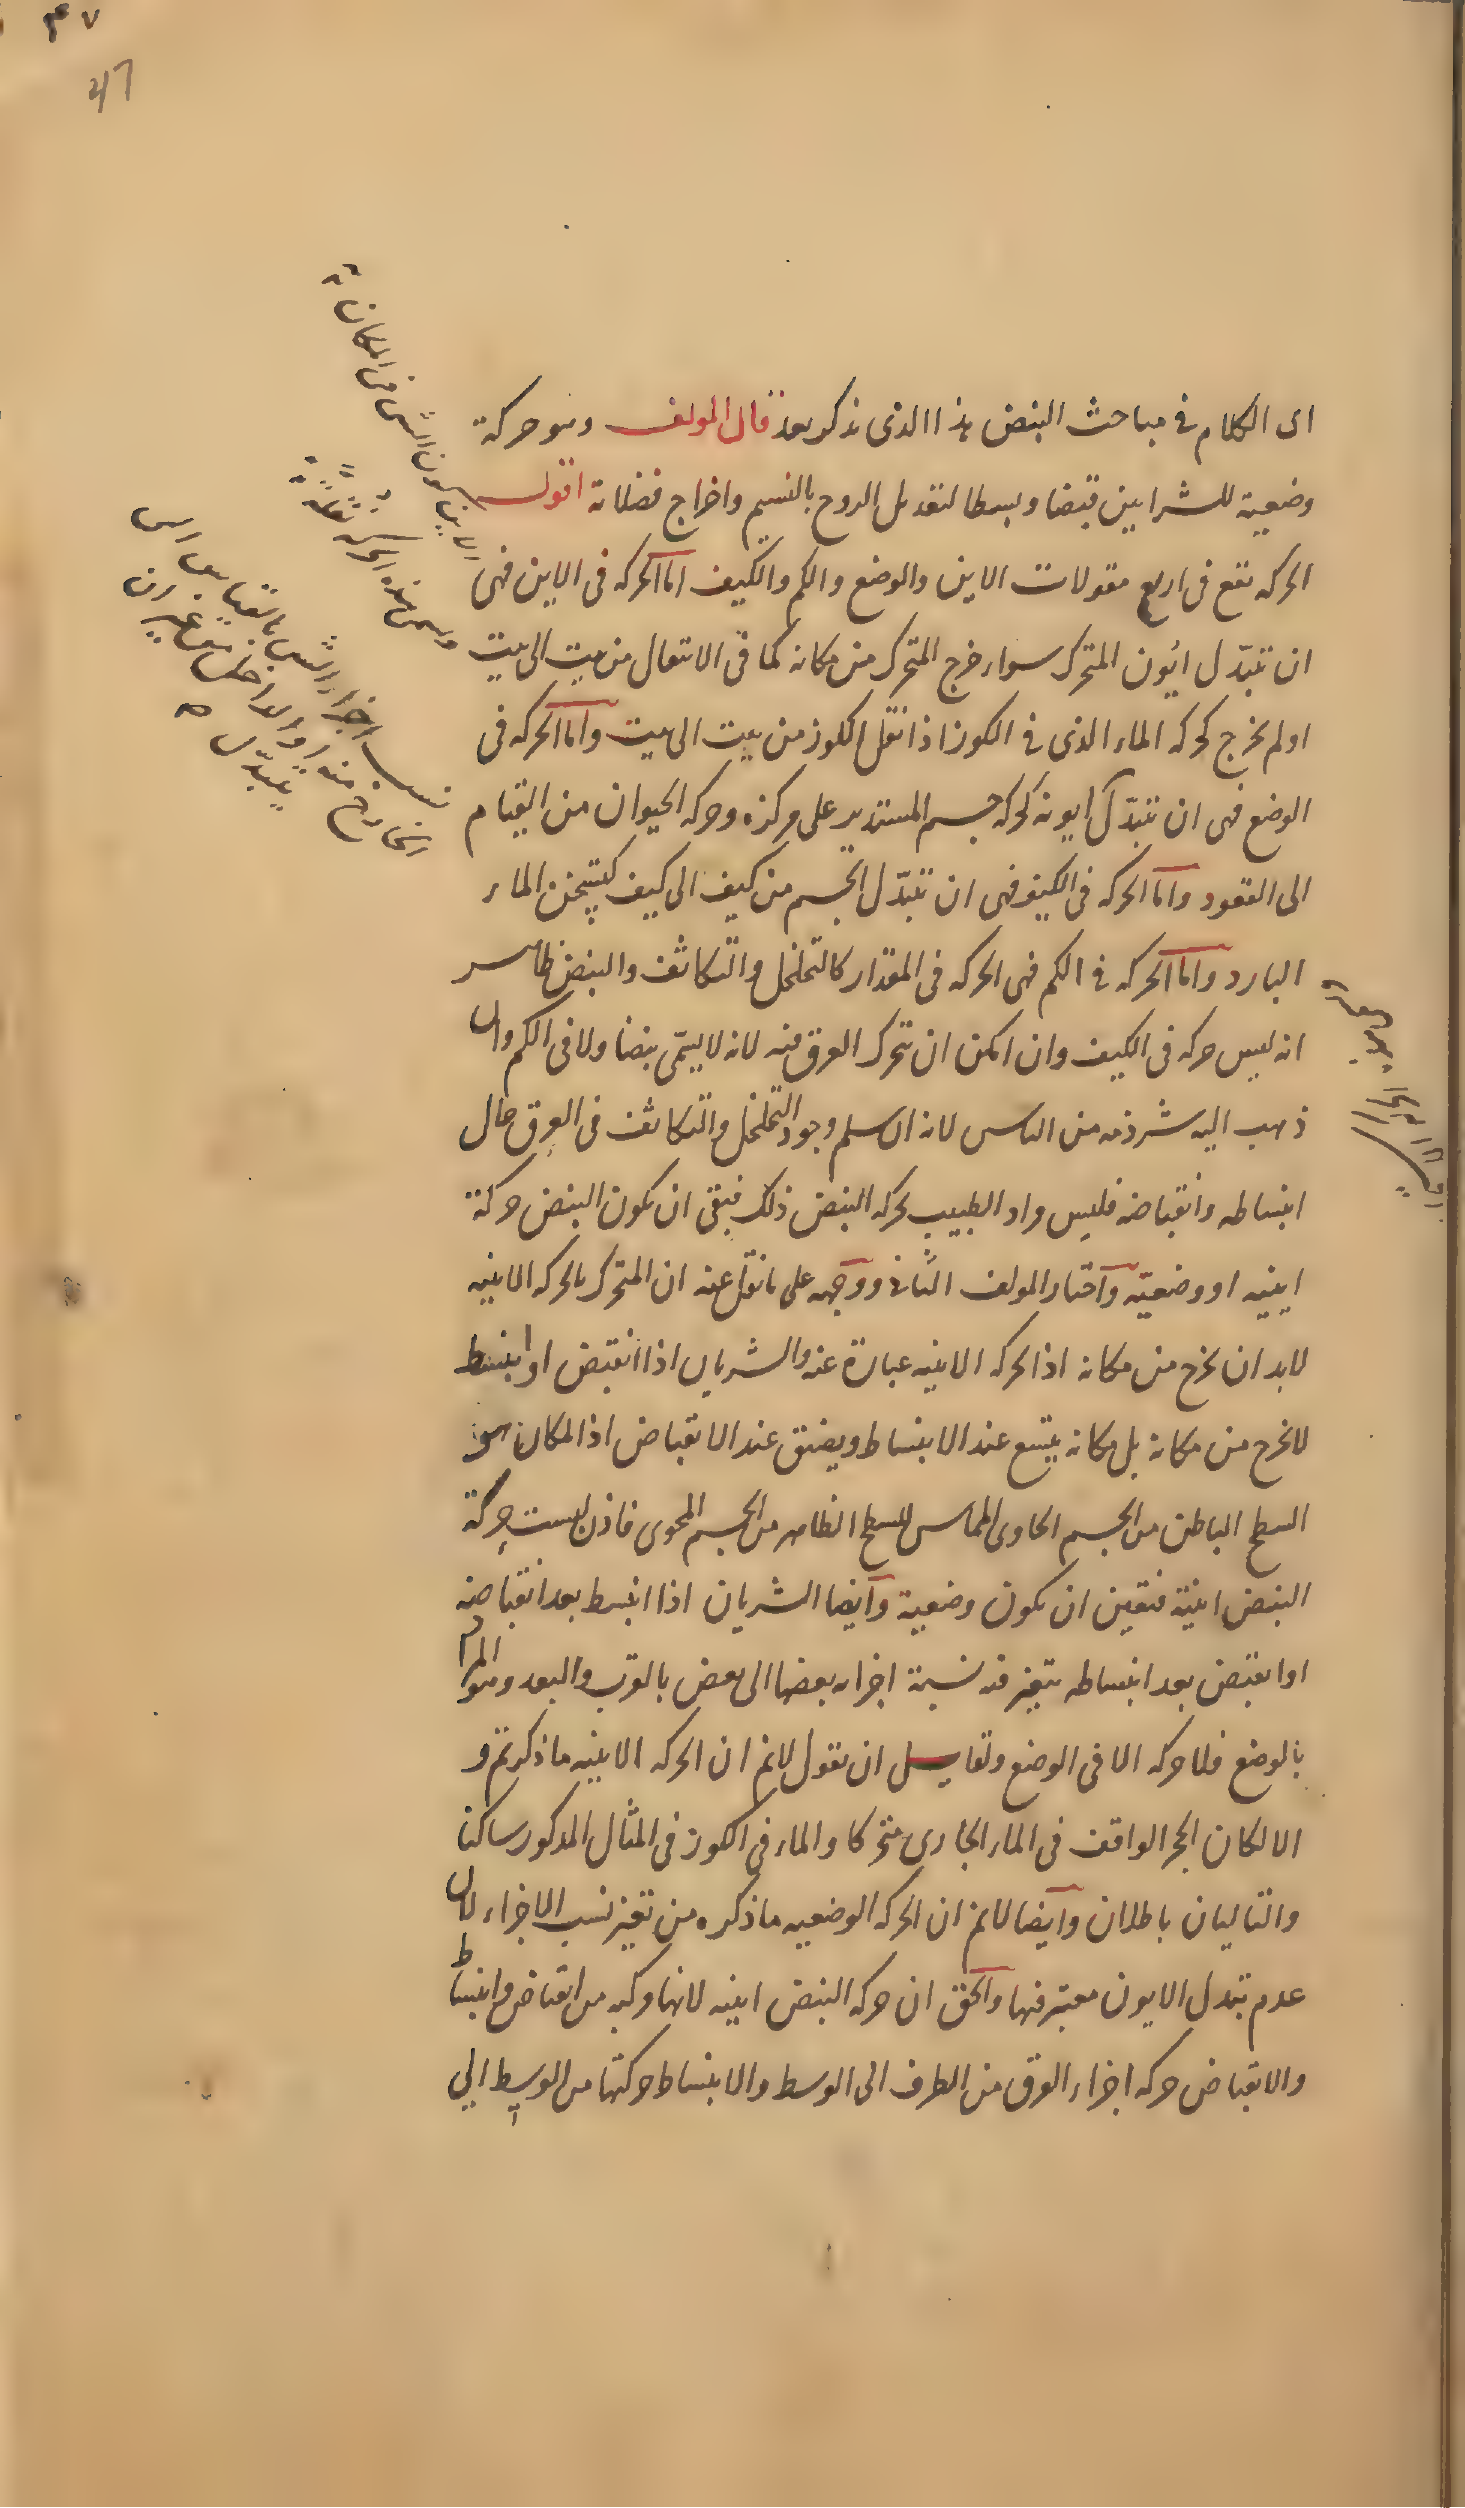 ۴۷
47
اى الكلام فى مباحث النبض هذا الذى نذكر بعد قال المولف وهو حركة
وضعية للشرايين قبضا وبسطا لتعديل الروح بالنسيم واخراج فضلاته اقول
الحركه تقع فى اربع مقولات الاين والوضع والكم والكيف اما الحركه فى الاين فهى
ان تتبدّل ايُون المتحرك سواء خرج المتحرك من مكانه كما فى الانتقال من بيت الى بيت
او لم يخرج كحركه الماء الذى فى الكوز اذا نقل الكوز من بيت الى بيت واما الحركه فى
الوضع فهى ان تتبدّل ايونه كحركه جسم المستدير على مركزه وحركه الحيوان من القيام
الى القعود واما الحركه فى الكيف فهى ان تتبدّل الجسم من كيف الى كيف كتسخن الماء
البارد واما الحركه فى الكم فهى الحركه فى المقدار كالتخلخل والتكاثف والنبض ظاهر
انه ليس حركه فى الكيف وان امكن ان تتحرك العرق فيه لانه لا يسمّى نبضا ولا فى الكم وان
ذهب اليه شرذمه من الناس لانه ان سلم وجود التخلخل والتكاثف فى العرق حال
انبساطه وانقباضه فليس مراد الطبيب بحركه النبض ذلك فبقى ان يكون النبض حركة
اينيه او وضعيّه واختار المولف الثانى ووجهه على ما نقل عنه ان المتحرك بالحركه الاينيه
لابد ان يخرج من مكانه اذ الحركه الاينيه عبارة عنه والشريان اذا انقبض او انبسط
لا يخرج من مكانه بل مكانه يتسع عند الانبساط ويضيق عند الانقباض اذ المكان هو
السطح الباطن من الجسم الحاوى المماس للسطح الظاهر من الجسم المحوى فاذن ليست حركة
النبض اينيّة فتعين ان يكون وضعية وايضا الشريان اذا انبسط بعد انقباضه
او انقبض بعد انبساطه يتغير فيه نسبة اجزائه بعضها الى بعض بالقرب والبعد وهو المراد
بالوضع فلا حركه الا فى الوضع ولقايل ان يقول لانم ان الحركه الاينيه ما ذكرتم و
الا لكان الحجر الواقف فى الماء الجارى متحركا والماء فى الكوز فى المثال المذكور ساكنا
والتاليان باطلان وايضا لانم ان الحركه الوضعيه ما ذكره من تغير نسب الاجزاء لان
عدم تبدل الايون معتبر فيها والحق ان حركه النبض اينيه لانها مركبه من انقباض وانبساط
والانقباض حركه اجزاء العرق من الطرف الى الوسط والانبساط حركتها من الوسط الى
الاين كون الشى فى المكان
ويسمى هذه الحركة نقلة
نسب اجزاء الشى بالقياس الى
الخارج منه او الداخل من غير ان
يتبدل